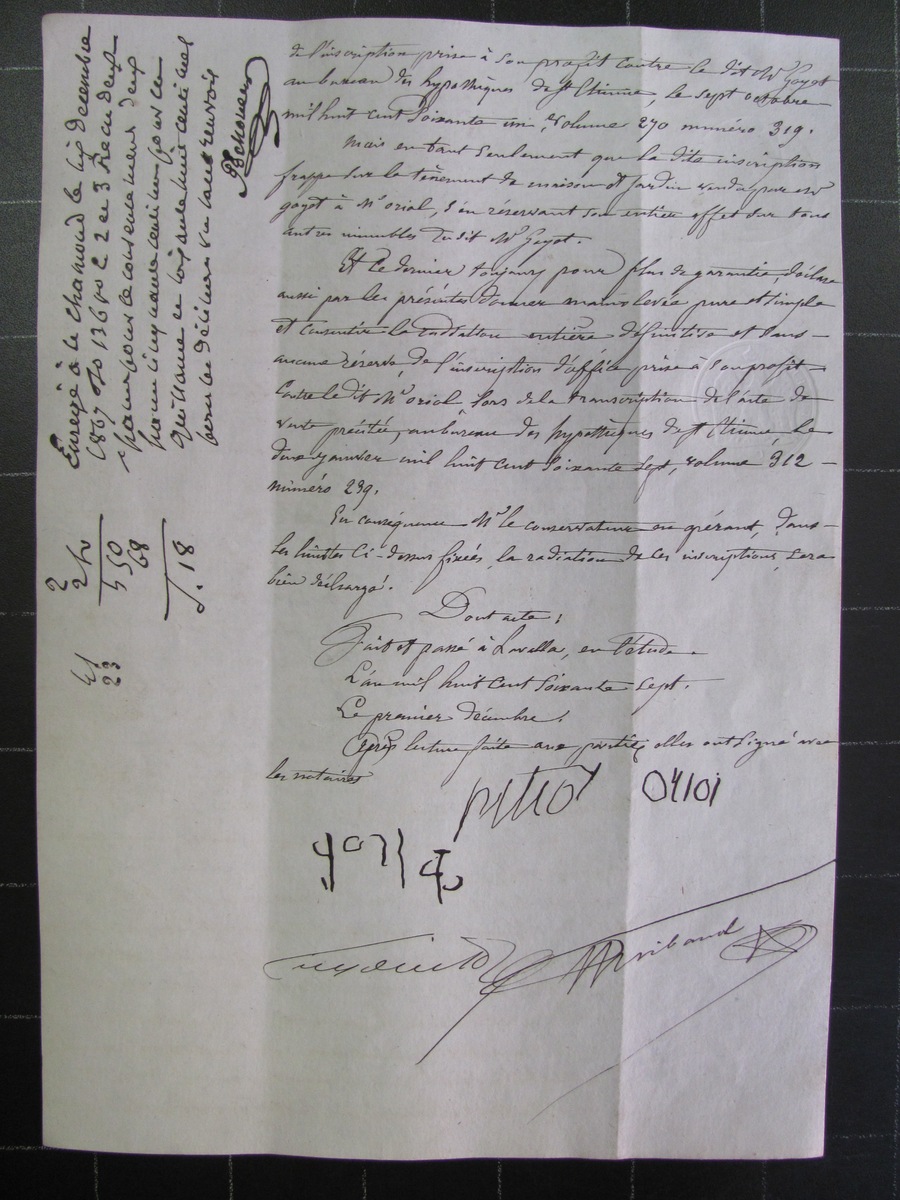 de l'inscription prise à son profit contre le dit Mr Goyot
au bureau des hypothèques de St Etienne, le sept octobre
mil huit cent soixante un, volume 270 numéro 319.
Mais en tant seulement que la dite inscription
frappe sur le tènement de maison et jardin vendu par Mr
Goyot à Mr orial, s'en réservant son entier effet sur tous
autres immeubles dudit Mr Goyot.
Et ce dernier toujours pour plus de garantie, déclare
aussi par les présentes donner main levée pure et simple
et consentir la radiation entière définitive et sans
aucune réserve, de l'inscription d'office prise à son profit
contre le dit Mr orial lors de la transcription de l'acte de
vente précitée, au bureau des hypothèques de St Etienne, le
deux janvier mil huit cent soixante sept, volume 312
numéro 239.
En conséquence Mr le conservateur en opérant, dans
les limites ci-dessus fixées, la radiation de ces inscriptions, sera
bien déchargé.
Dont acte.
Fait et passé à , en l'étude.
L'an mil huit cent soixante sept.
Le premier décembre.
Après lecture faite aux parties elles ont signé avec
les notaires
orioi
Enregé à St Chamond le six décembre
1867 fo 136 Ro C 2 et 3 Reçu deux
francs pour le consentement deux
francs cinquante centimes pour
quittance et soixante huit centimes
pour les décimes
2
2 50
5 50
68
5.18
23